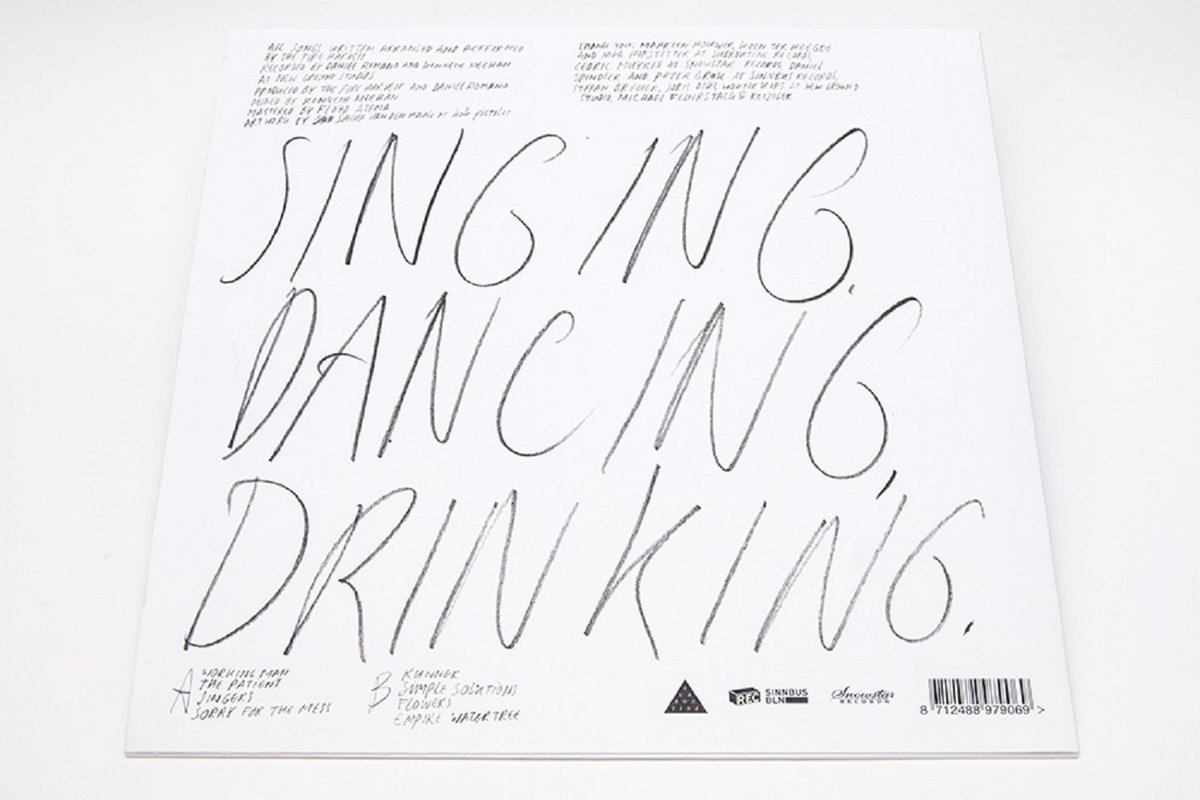 ALL SONGS WRITTEN ARRANGED AND PERFORMED
BY THE FIRE HARVEST
RECORDED BY DANIEL ROMANO AND KENNETH MEEHAN
AT NEW GROUND STUDIOS
PRODUCED BY THE FIRE HARVEST AND DANIEL ROMANO
MIXED BY KENNETH MEEHAN
MASTERED BY FLOYD ATEMA
ARTWORK BY SACHA VAN DEN
THANK YOU: MAARTEN
AND AT SUBROUTINE RECORDS,
CEDRIC MUYRES AT SNOWSTAR RECORDS, DANIEL
SPINDLER AND PETER GRUSE AT SINNBUS RECORDS,
STEFAN BREUER, JORIS AT NEW GROUND
STUDIO, MICHAEL FEUERSTACK & KEIZIGER
SINGING.
DANCING,
DRINKING.
A WORKING MAN
THE PATIENT
SINGERS
SORRY FOR THE MESS
B RUNNER
SIMPLE SOLUTIONS
FLOWERS
EMPIRE WATERTREE
REC SINNBUS
BLN
Snowstar
RECORDS
8 712488 979069 >